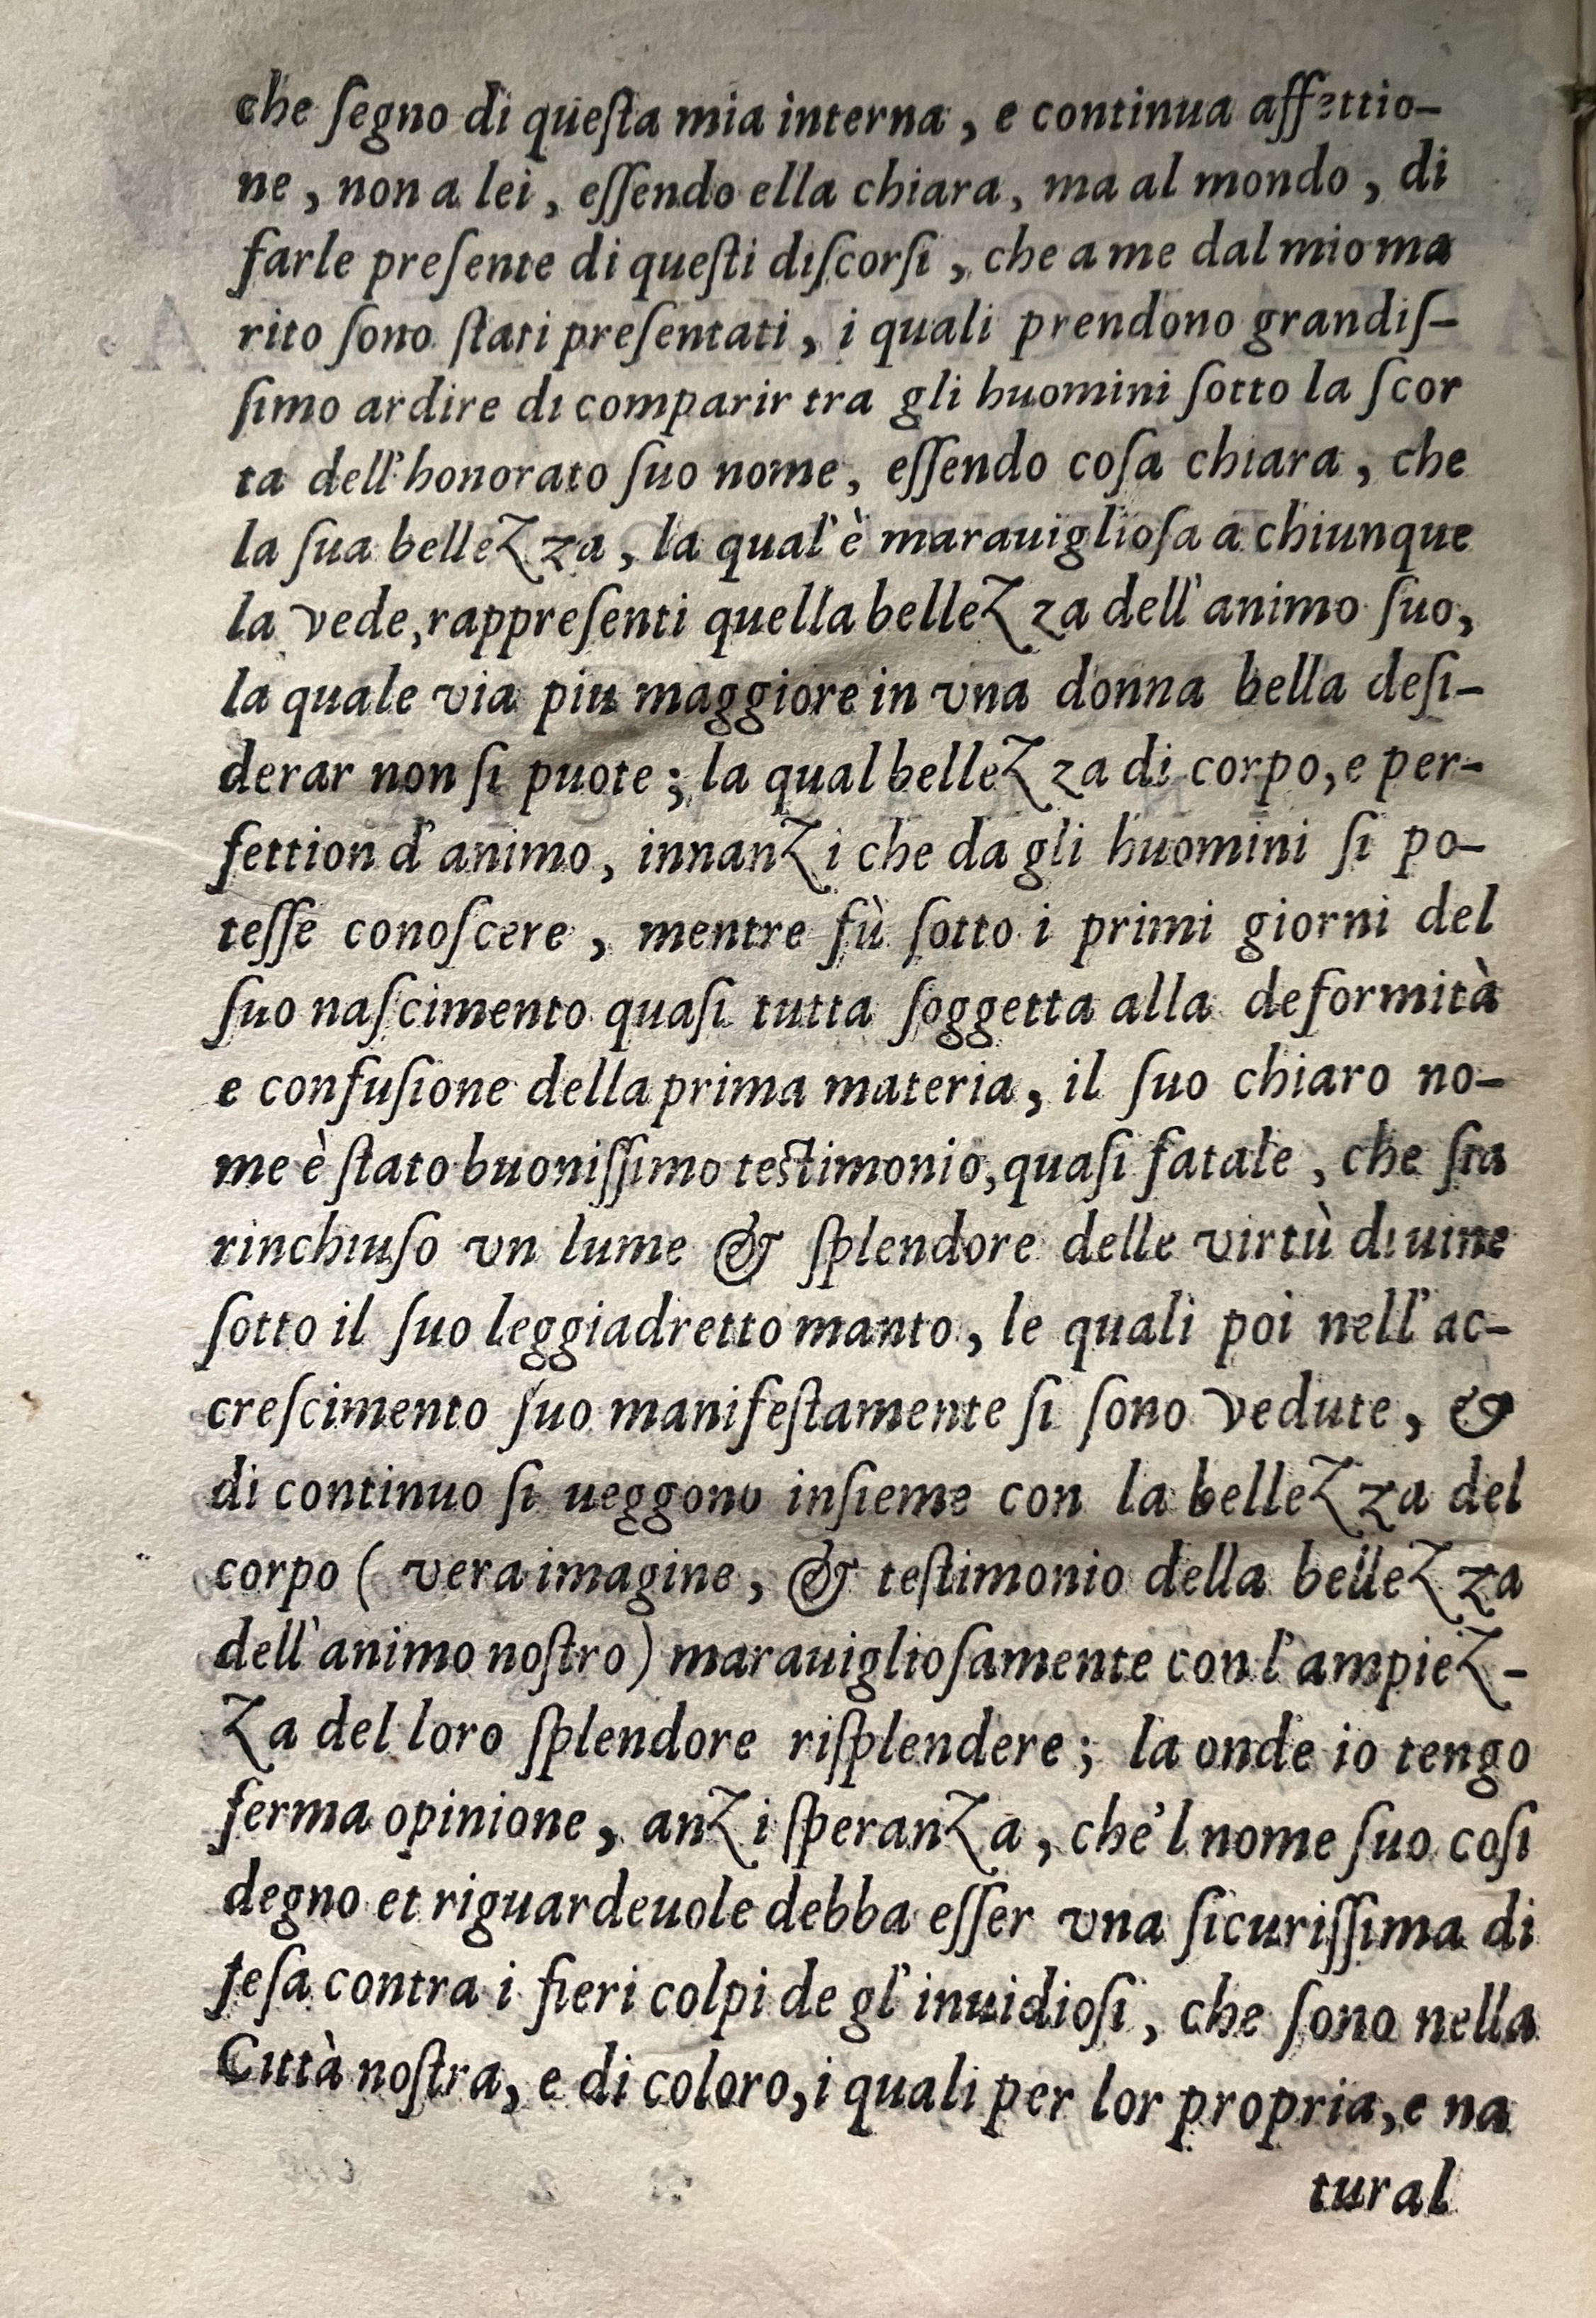 che ſegno di queſta mia interna, e continua affettio-
ne, non a lei, eſſendo ella chiara, ma al mondo, di
farle preſente di queſti diſcorſi, che a me dal mio ma
rito ſono ſtati preſentati, i quali prendono grandiſ-
ſimo ardire di comparir tra gli huomini ſotto la ſcor
ta dell'honorato ſuo nome, eſſendo coſa chiara, che
la ſua bellezza, la qual'è marauiglioſa a chiunque
la vede, rappreſenti quella bellezza dell'animo ſuo,
la quale via piu maggiore in vna donna bella deſi-
derar non ſi puote; la qual bellezza di corpo, e per-
fettion d'animo, innanzi che da gli huomini ſi po-
teſſe conoſcere, mentre fù ſotto i primi giorni del
ſuo naſcimento quaſi tutta ſoggetta alla deformità
e confuſione della prima materia, il ſuo chiaro no-
me è ſtato buoniſſimo teſtimonio, quaſi fatale, che ſta
rinchiuſo vn lume & ſplendore delle virtù diuine
ſotto il ſuo leggiadretto manto, le quali poi nell'ac-
creſcimento ſuo manifeſtamente ſi ſono vedute, &
di continuo ſi ueggono inſieme con la bellezza del
corpo ( vera imagine, & teſtimonio della bellezza
dell'animo noſtro) marauiglioſamente con l'ampiez-
za del loro ſplendore riſplendere; la onde io tengo
ferma opinione, anzi ſperanza, che'l nome ſuo coſi
degno et riguardeuole debba eſſer vna ſicuriſſima di
feſa contra i fieri colpi de gl'inuidioſi, che ſono nella
Città noſtra, e di coloro, i quali per lor propria, e na
tural